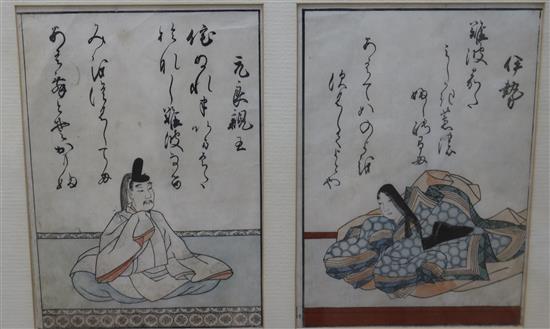 伊勢
難波かた
みしかき蘆の
婦しのまも
あはてこのよを
須くしてよとや
元良親王
侘ぬれは今はた
おなし難波なる
みをつくしても
あはむとそおもふ